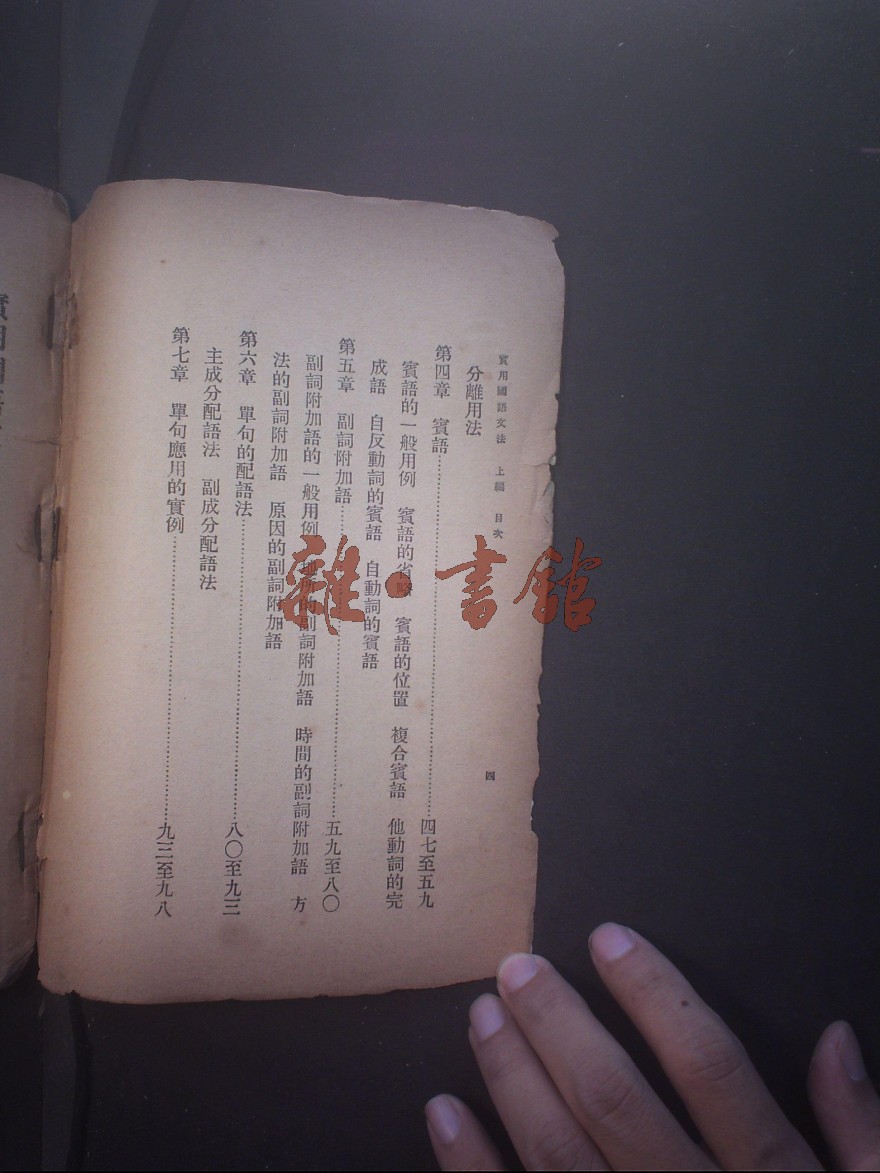 實用國語文法 上編 目次 四
分離用法
第四章 賓語……………四七至五九
賓語的一般用例 賓語的省略 賓語的位置 複合賓語 他動詞的完
成語 自反動詞的賓語 自動詞的賓語
第五章 副詞附加語……………五九至八〇
副詞附加語的一般用例 地所的副詞附加語 時間的副詞附加語 方
法的副詞附加語 原因的副詞附加語
第六章 單句的配語法……………八〇至九三
主成分配語法 副成分配語法
第七章 單句應用的實例……………九三至九八
雜·書館